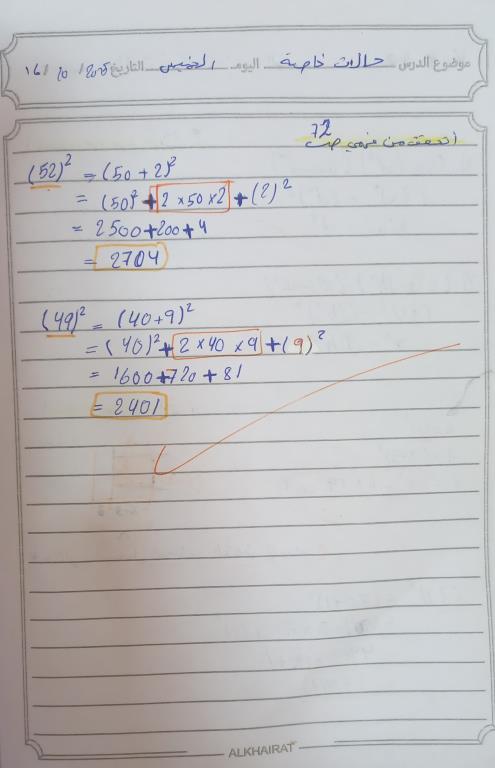 موضوع الدرس حالات خاصة اليوم الخميس التاريخ 16/10/2025
أتحقق من فهمي صـ 72
(52)² = (50 + 2)²
= (50)² + 2 × 50 × 2 + (2)²
= 2500 + 200 + 4
= 2704
(49)² = (40 + 9)²
= (40)² + 2 × 40 × 9 + (9)²
= 1600 + 720 + 81
= 2401
ALKHAIRAT